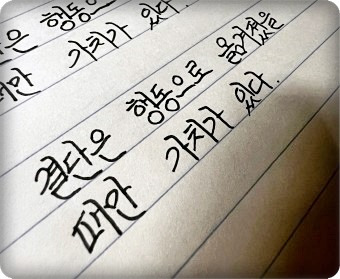 은 행동으
때만 가치가 있다.
결단은 행동으로 옮겨졌을
때만 가치가 있다.